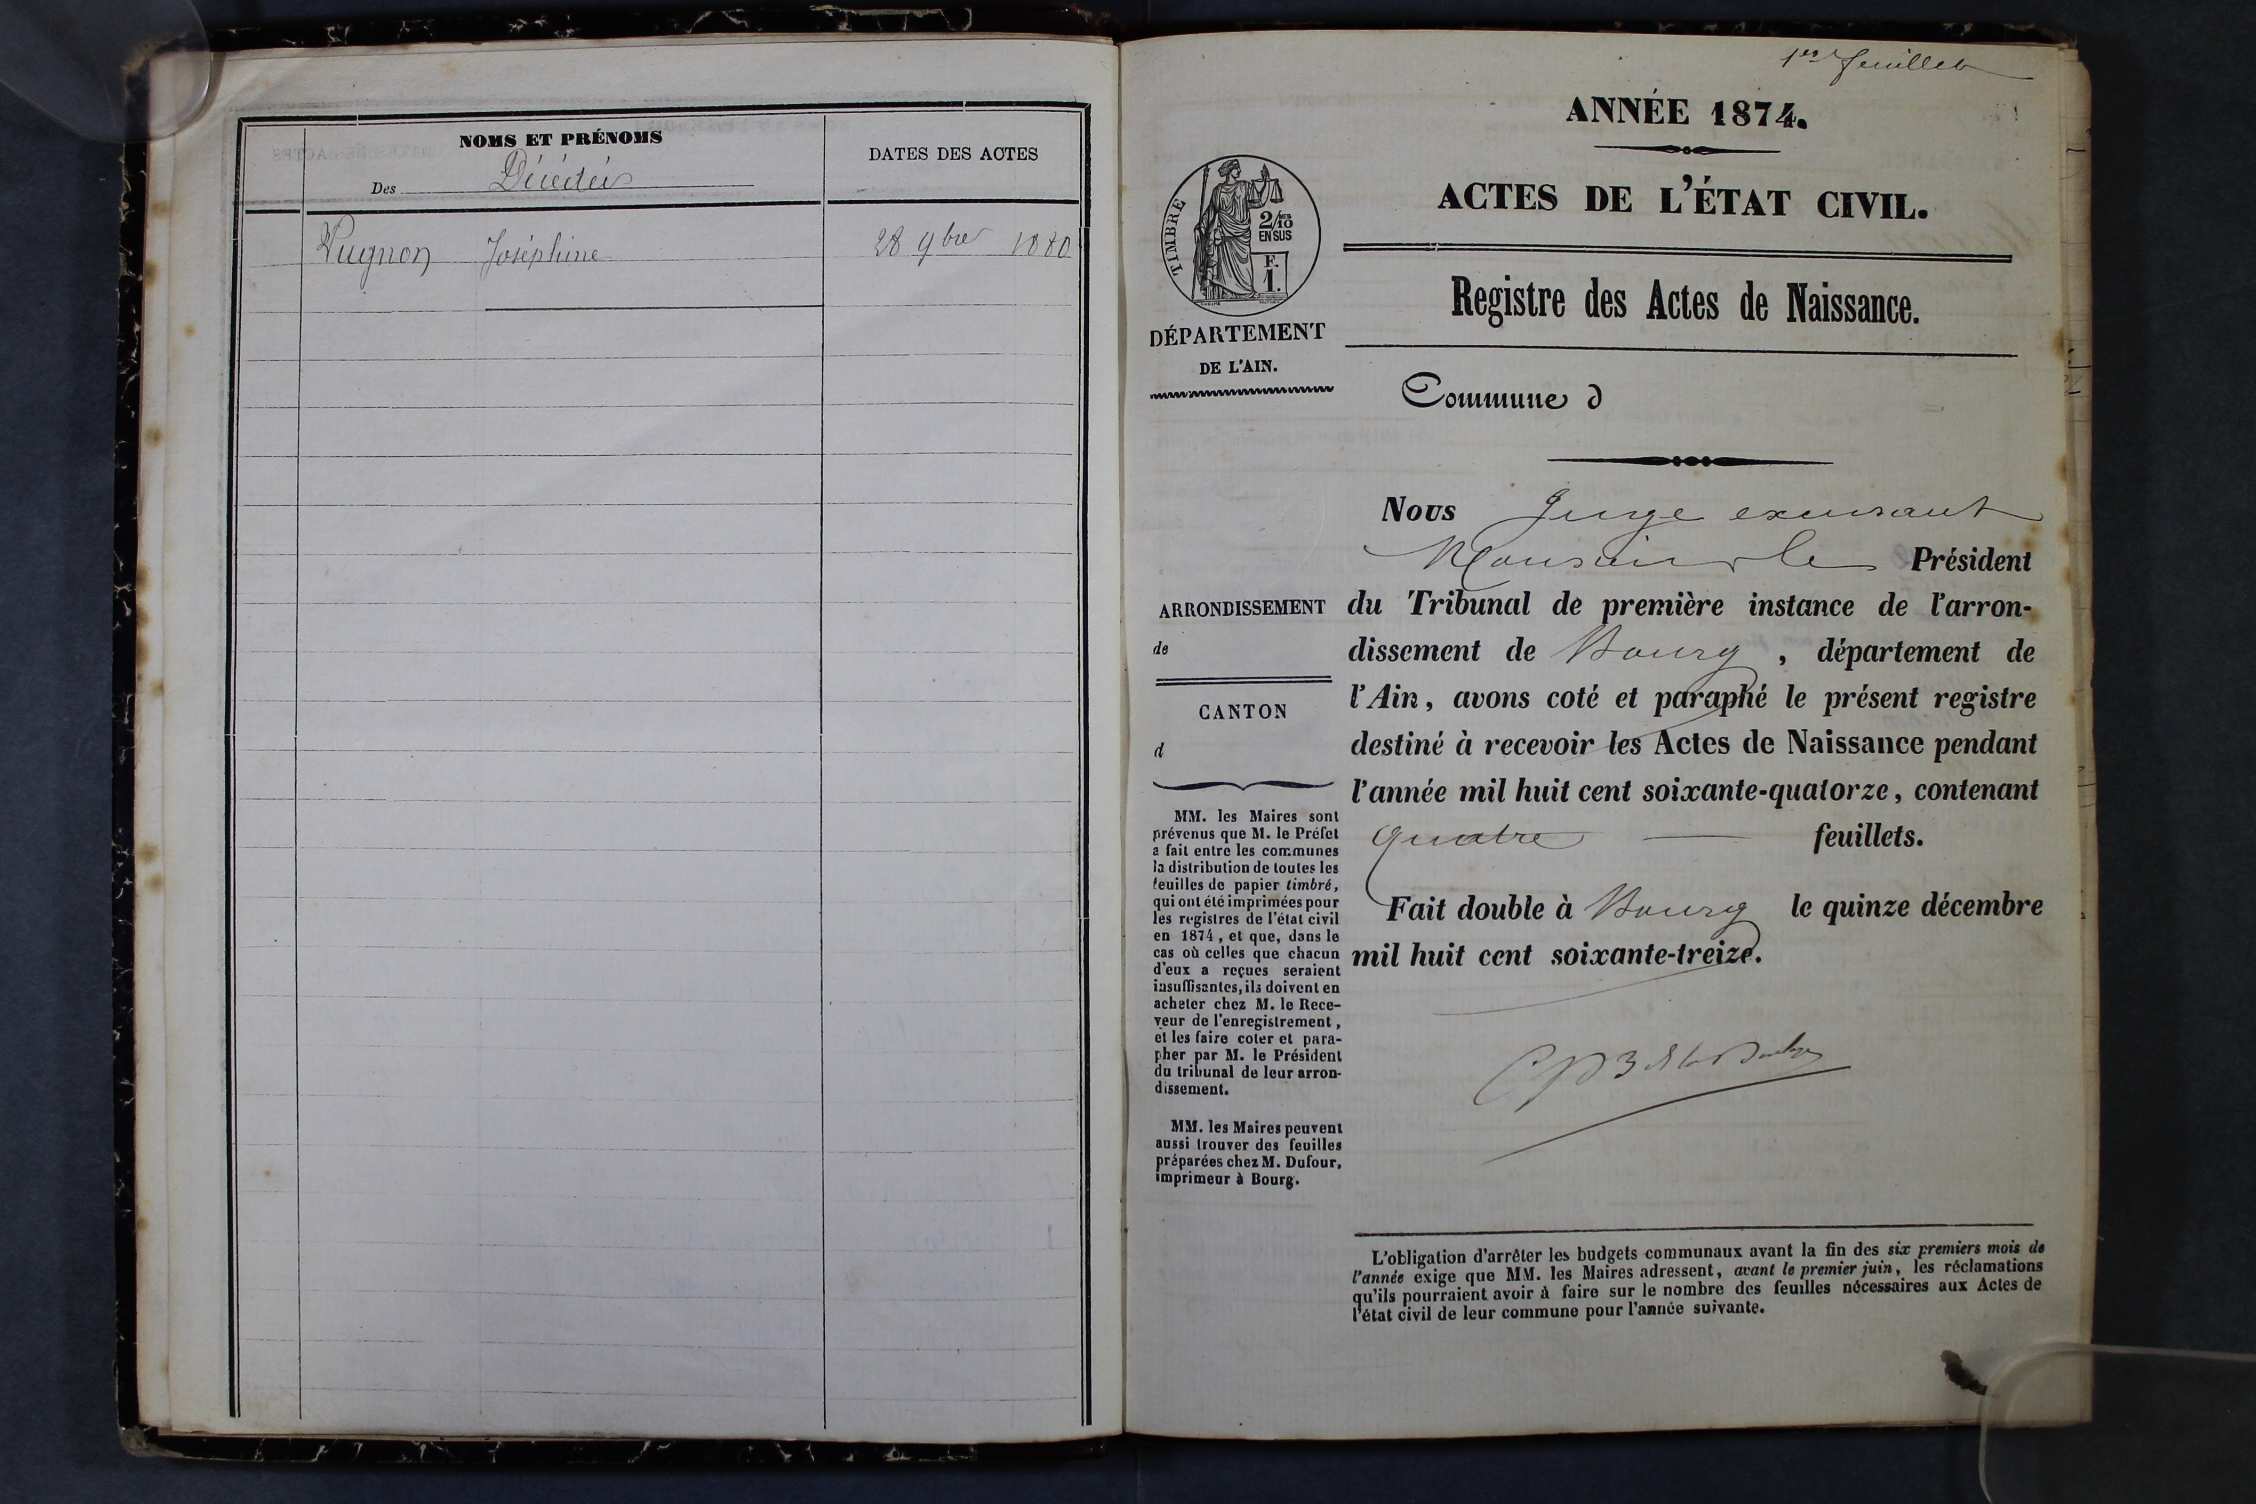 NOMS ET PRÉNOMS
Des Décédés
DATES DES ACTES
Vugnon Joséphine 28 9bre 1880
1er feuillet
ANNÉE 1874.
ACTES DE L'ÉTAT CIVIL.
TIMBRE
2/10 EN SUS
F. 1.
Registre des Actes de Naissance.
DÉPARTEMENT
DE L'AIN.
Commune d
ARRONDISSEMENT
de
CANTON
d
MM. les Maires sont
prévenus que M. le Préfet
a fait entre les communes
la distribution de toutes les
feuilles de papier timbré,
qui ont été imprimées pour
les registres de l'état civil
en 1874, et que, dans le
cas où celles que chacun
d'eux a reçues seraient
insuffisantes, ils doivent en
acheter chez M. le Rece-
veur de l'enregistrement,
et les faire coter et para-
pher par M. le Président
du tribunal de leur arron-
dissement.
MM. les Maires peuvent
aussi trouver des feuilles
préparées chez M. Dufour,
imprimeur à Bourg.
Nous Juge excusant
Monsieur le Président
du Tribunal de première instance de l'arron-
dissement de Bourg, département de
l'Ain, avons coté et paraphé le présent registre
destiné à recevoir les Actes de Naissance pendant
l'année mil huit cent soixante-quatorze, contenant
quatre feuillets.
Fait double à Bourg le quinze décembre
mil huit cent soixante-treize.
L'obligation d'arrêter les budgets communaux avant la fin des six premiers mois de
l'année exige que MM. les Maires adressent, avant le premier juin, les réclamations
qu'ils pourraient avoir à faire sur le nombre des feuilles nécessaires aux Actes de
l'état civil de leur commune pour l'année suivante.